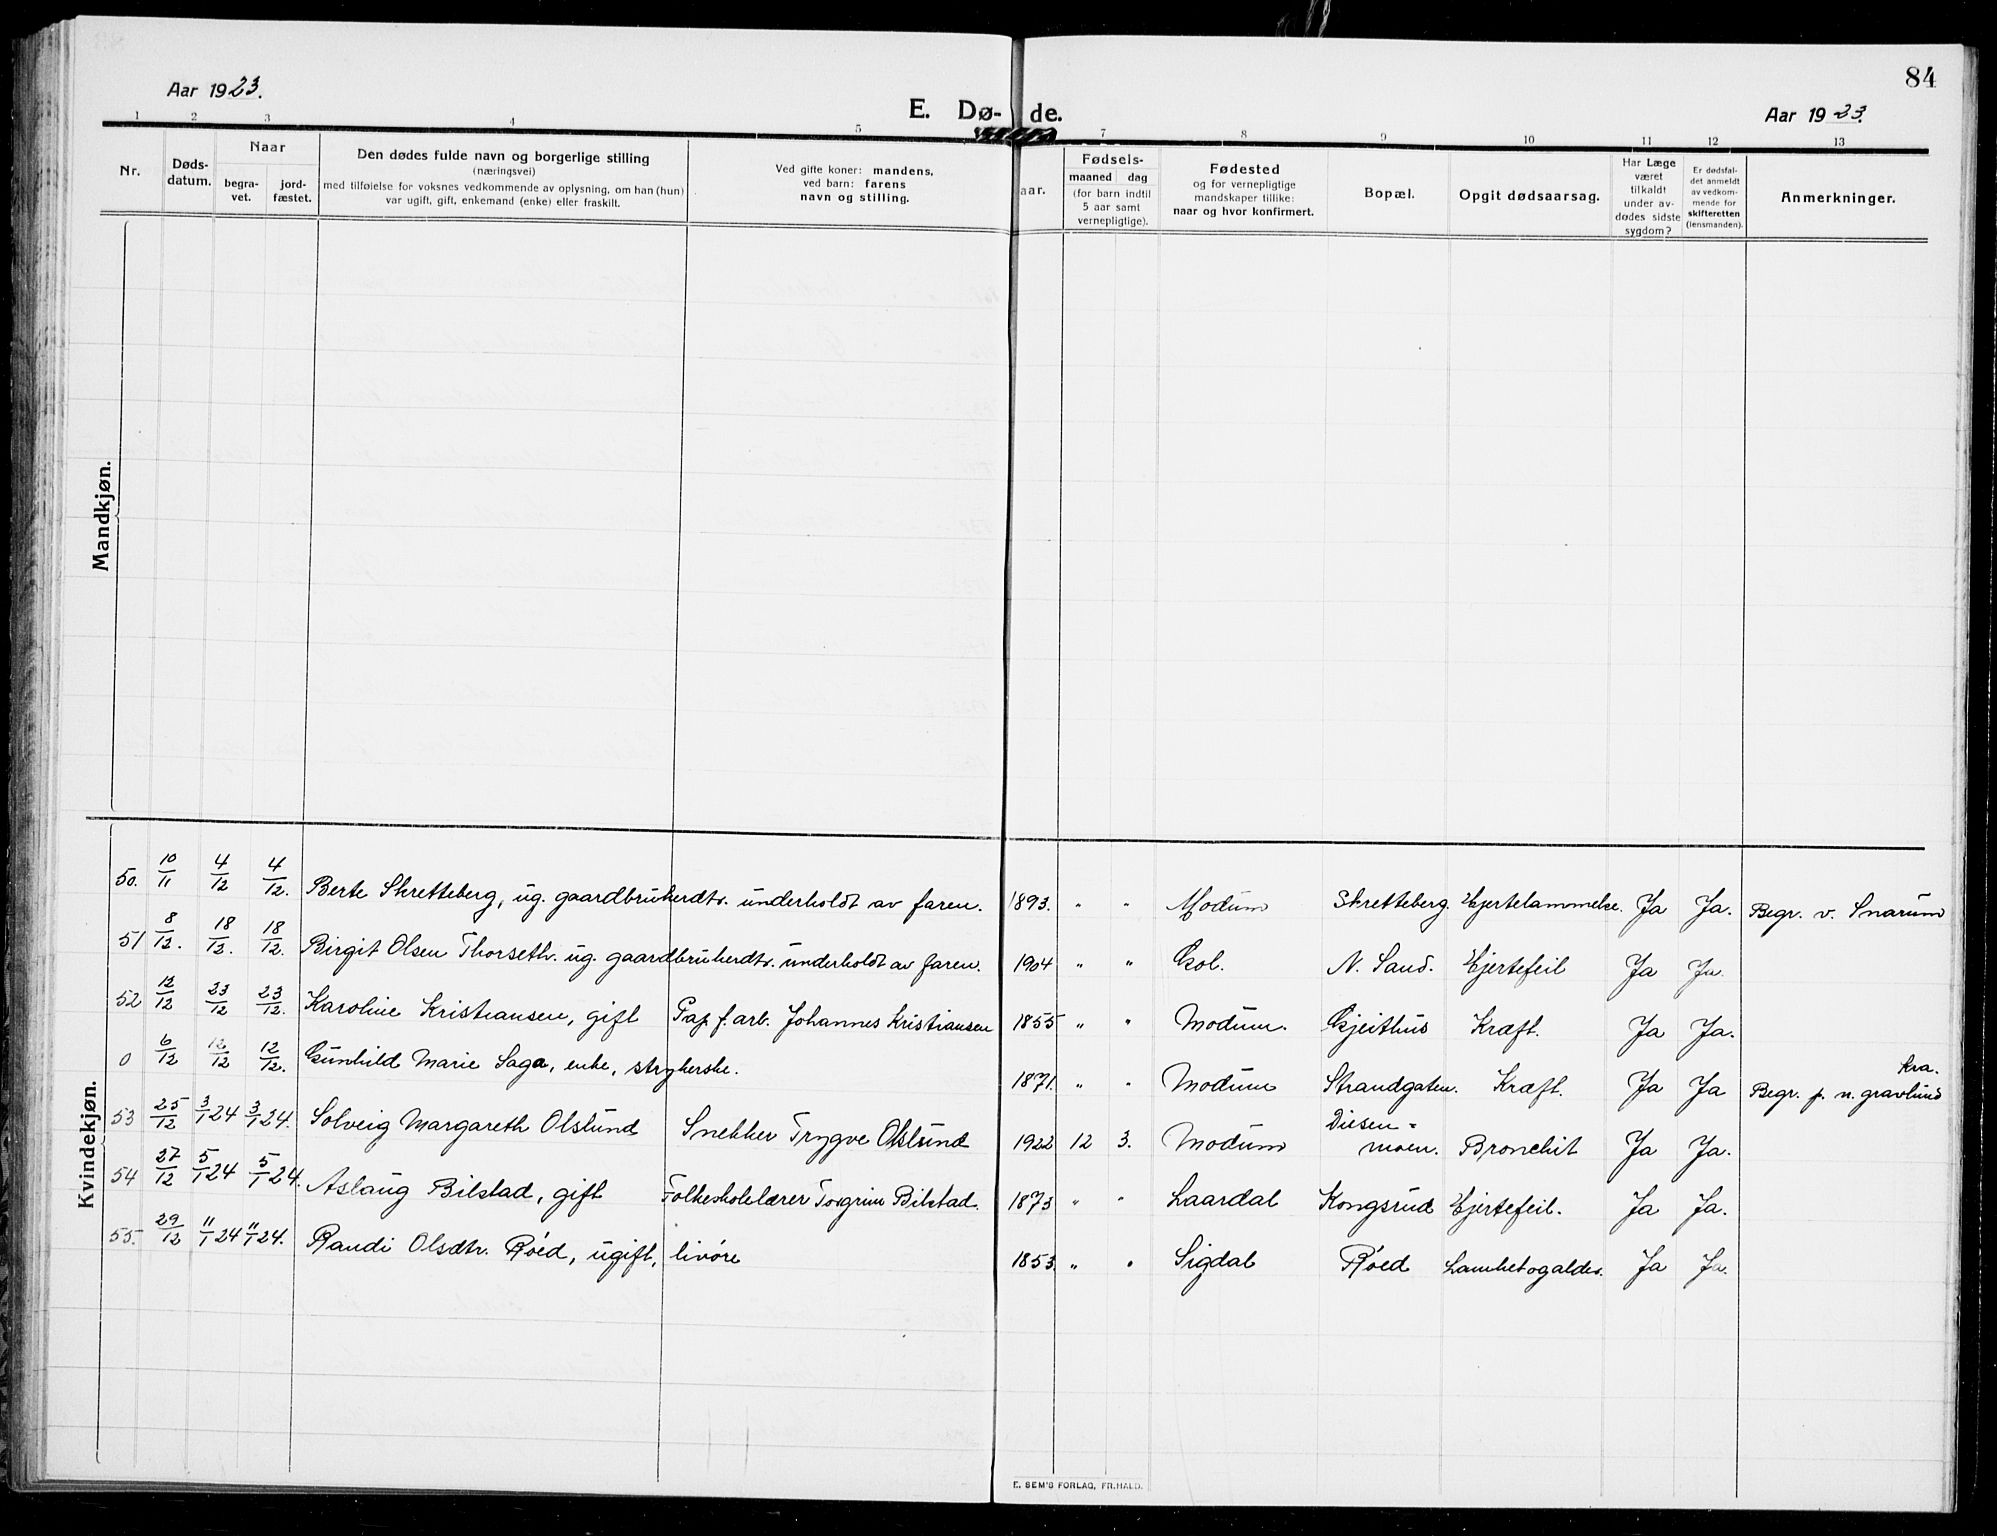 84
Aar 1923.
E. Dø- de.
Aar 1923.
1 2 3 4 5 7 8 9 10 11 12 13
Nr.
Døds-
datum.
Naar
begra-
vet.
jord-
fæstet.
Den dødes fulde navn og borgerlige stilling
(næringsvei)
med tilføielse for voksnes vedkommende av oplysning, om han (hun)
var ugift, gift, enkemand (enke) eller fraskilt.
Ved gifte koner: mandens,
ved barn: farens
navn og stilling.
aar.
Fødsels-
maaned dag
(for barn indtil
5 aar samt
vernepligtige).
Fødested
og for vernepligtige
mandskaper tillike:
naar og hvor konfirmert.
Bopæl.
Opgit dødsaarsag.
Har Læge
været
tilkaldt
under av-
dødes sidste
sygdom?
Er dødsfal-
det anmeldt
av vedkom-
mende for
skifteretten
(lensmanden).
Anmerkninger.
Mandkjøn.
Kvindekjøn.
50. 10/11 4/12 4/12. Berte Skretteberg, ug. gaardbrukerdtr. underholdt av faren. 1893. " " Modum Skretteberg. Hjertelammelse. Ja Ja. Begr. v. Snarum
51 8/12. 18/12. 18/12. Birgit Olsen Thorseth. ug. gaardbrukerdtr. underholdt av faren. 1904 " " Gol. N. Sand. Hjertefeil Ja Ja.
52 12/12 23/12 23/12. Karoline Kristiansen, gift Pap. f. arb. Johannes Kristiansen 1855 " " Modum. Gjeithus Kræft. Ja Ja.
0 6/12 12/12 12/12. Gunhild Marie Saga, enke, strykerske. 1871. " " Modum Strandgaten. Kræft. Ja Ja Begr. p. n. gravlund Kra.
53 25/12 3/1 24 3/1 24. Solveig Margareth Olslund Snekker Trygve Olslund 1922 12 3. Modum Diesen-
moen. Bronchit Ja Ja.
54 27/12 5/1 24 5/1 24. Aslaug Bilstad, gift Folkeskolelærer Torgrim Bilstad. 1873 " " Laardal Kongsrud Hjertefeil. Ja Ja.
55. 29/12 11/1 24 11/1 24. Randi Olsdtr. Røed, ugift, livøre 1853. " " Sigdal Røed Ja Ja.
E. SEM'S FORLAG, FR.HALD.